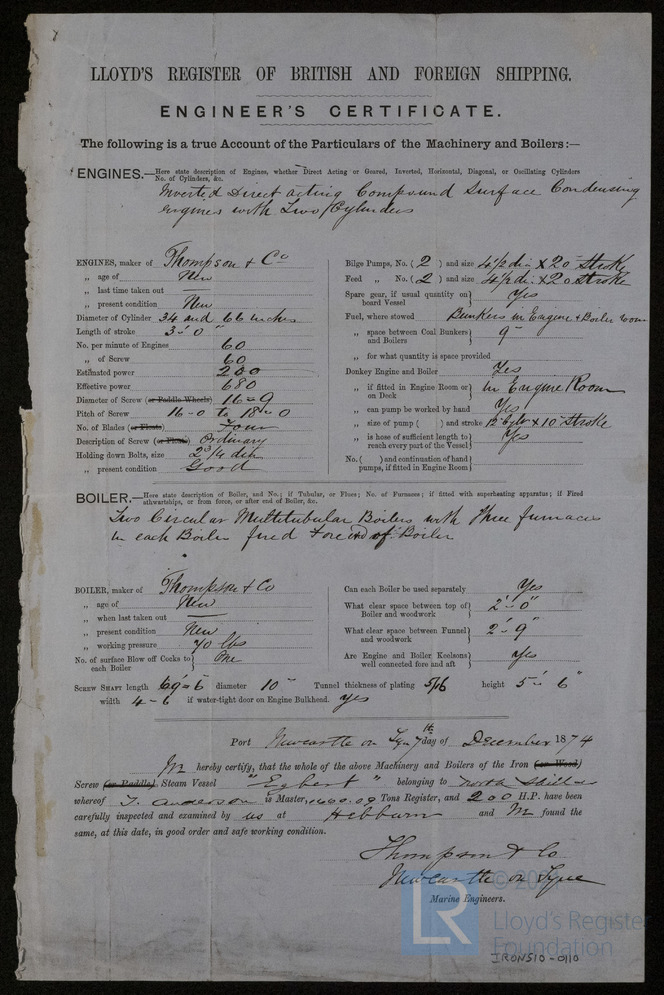 LLOYD'S REGISTER OF BRITISH AND FOREIGN SHIPPING.
ENGINEER'S CERTIFICATE.
The following is a true Account of the Particulars of the Machinery and Boilers:—
ENGINES.—Here state description of Engines, whether Direct Acting or Geared, Inverted, Horizontal, Diagonal, or Oscillating Cylinders
No. of Cylinders, &c.
Inverted Direct acting Compound Surface Condensing
Engines with Two Cylinders
ENGINES, maker of Thompson & Co
„ age of New
„ last time taken out —
„ present condition New
Diameter of Cylinder 34 and 66 inches
Length of stroke 3'-0"
No. per minute of Engines 60
„ of Screw 60
Estimated power 200
Effective power 680
Diameter of Screw (or Paddle Wheels) 16-9
Pitch of Screw 16-0 to 18-0
No. of Blades (or Floats) Four
Description of Screw (or Floats) Ordinary
Holding down Bolts, size 2 3/4 dia
„ present condition Good
Bilge Pumps, No. (2) and size 4 1/2 di. x 20" Stroke
Feed „ No. (2) and size 4 1/2 di. x 20 Stroke
Spare gear, if usual quantity on board Vessel } Yes
Fuel, where stowed Bunkers in Engine & Boiler room
„ space between Coal Bunkers and Boilers } 9"
„ for what quantity is space provided
Donkey Engine and Boiler Yes
„ if fitted in Engine Room or on Deck } in Engine Room
„ can pump be worked by hand Yes
„ size of pump ( ) and stroke 12" Cylr x 10" Stroke
„ is hose of sufficient length to reach every part of the Vessel } Yes
No. ( ) and continuation of hand pumps, if fitted in Engine Room }
BOILER.—Here state description of Boiler, and No.; if Tubular, or Flues; No. of Furnaces; if fitted with superheating apparatus; if Fired
athwartships, or from force, or after end of Boiler, &c.
Two Circular Multitubular Boilers with Three furnaces
in each Boiler fired Fore End of Boiler
BOILER, maker of Thompson & Co
„ age of New
„ when last taken out —
„ present condition New
„ working pressure 70 lbs
No. of surface Blow off Cocks to each Boiler } One
Can each Boiler be used separately Yes
What clear space between top of Boiler and woodwork } 2'-0"
What clear space between Funnel and woodwork } 2'-9"
Are Engine and Boiler Keelsons well connected fore and aft } Yes
SCREW SHAFT length 69'-6 diameter 10" Tunnel thickness of plating 5/16 height 5'-6"
width 4-6 if water-tight door on Engine Bulkhead. Yes
Port Newcastle on Tyn 7th day of December 1874
hereby certify, that the whole of the above Machinery and Boilers of the Iron (or Wood)
Screw (or Paddle) Steam Vessel "Egbert" belonging to North Shields
whereof T. Anderson is Master, Tons Register, and 200 H.P. have been
carefully inspected and examined by us at Hebburn and found the
same, at this date, in good order and safe working condition.
Thompson & Co
Newcastle on Tyne
Marine Engineers.
LR
Lloyd's Register
Foundation
IRON510-0110